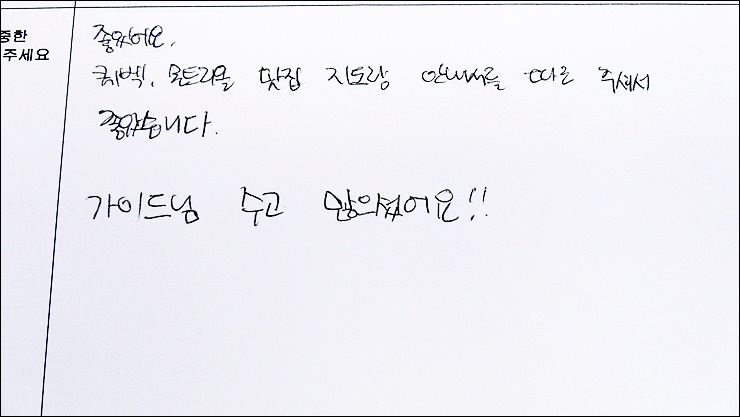 중한
주세요
좋았어요.
퀘벡, 몬트리올 맛집 지도랑 안내서를 따로 주셔서
좋았습니다.
가이드님 수고 많으셨어요!!